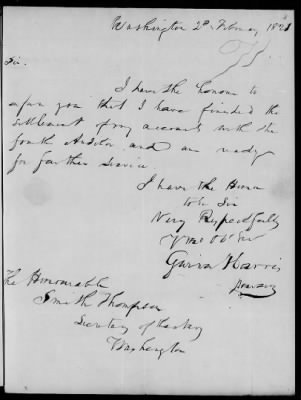 Washington 2d February 1821
Sir.
I have the honour to
inform you that I have finished the
settlement of my accounts with the
fourth Auditor and am ready
for further service.
I have the Honor
to be Sir
Very Respectfully
Your Obt Ser
Gwinn Harris
Purser
The Honourable
Smith Thompson
Secretary of the Navy
Washington